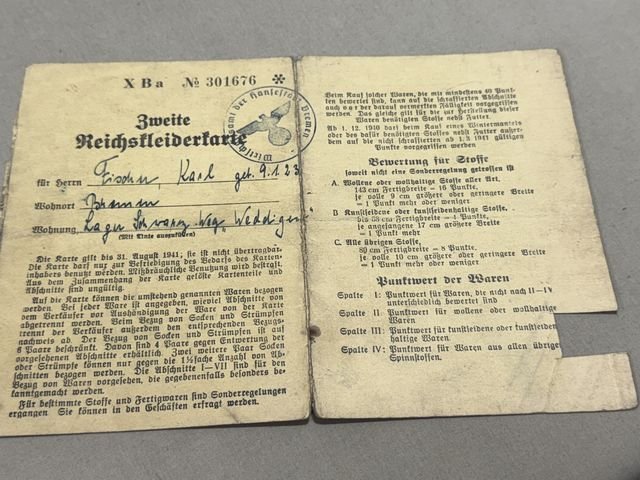 X B a № 301676 *
Zweite
Reichskleiderkarte
Wirtschaftsamt der Hansestadt Bremen
für Herrn Fischer, Karl geb. 9.1.23
Wohnort Bremen
Wohnung Lager Schwarz-Weg „Weddigen
(Mit Tinte auszufüllen)
Die Karte gilt bis 31. August 1941, sie ist nicht übertragbar.
Die Karte darf nur zur Befriedigung des Bedarfs des Karten-
inhabers benutzt werden. Mißbräuchliche Benutzung wird bestraft.
Aus dem Zusammenhang der Karte gelöste Kartenteile und
Abschnitte sind ungültig.
Auf die Karte können die umstehend genannten Waren bezogen
werden. Bei jeder Ware ist angegeben, wieviel Abschnitte von
dem Verkäufer vor Aushändigung der Ware von der Karte
abgetrennt werden. Beim Bezug von Socken und Strümpfen
trennt der Verkäufer außerdem den entsprechenden Bezugs-
nachweis ab. Der Bezug von Socken und Strümpfen ist auf
6 Paare beschränkt. Davon sind 4 Paare gegen Entwertung der
vorgesehenen Abschnitte erhältlich. Zwei weitere Paar Socken
oder Strümpfe können nur gegen die 1½fache Anzahl von Ab-
schnitten bezogen werden. Die Abschnitte I—VII sind für den
Bezug von Waren vorgesehen, die gegebenenfalls besonders be-
kanntgemacht werden.
Für bestimmte Stoffe und Fertigwaren sind Sonderregelungen
ergangen Sie können in den Geschäften erfragt werden.
Beim Kauf solcher Waren, die mit mindestens 40 Punk-
ten bewertet sind, kann auf die schraffierten Abschnitte
auch vor der darauf vermerkten Fälligkeit vorgegriffen
werden. Das gleiche gilt für die zur Herstellung dieser
Waren benötigten Stoffe nebst Futter.
Ab 1. 12. 1940 darf beim Kauf eines Wintermantels
oder des dafür benötigten Stoffes nebst Futter außer-
dem auf die nicht schraffierten ab 1. 3. 1941 gültigen
Punkte vorgegriffen werden
Bewertung für Stoffe
soweit nicht eine Sonderregelung getroffen ist
A. Wollene oder wollhaltige Stoffe aller Art.
143 cm Fertigbreite – 16 Punkte,
je volle 9 cm größere oder geringere Breite
– 1 Punkt mehr oder weniger
B Kunstseidene oder kunstseidenhaltige Stoffe.
bis 68 cm Fertigbreite – 4 Punkte,
je angefangene 17 cm größere Breite
– 1 Punkt mehr
C. Alle übrigen Stoffe,
80 cm Fertigbreite – 8 Punkte.
je volle 10 cm größere oder geringere Breite
– 1 Punkt mehr oder weniger!
Punktwert der Waren
Spalte I: Punktwert für Waren, die nicht nach II—IV
unterschiedlich bewertet sind
Spalte II Punktwert für wollene oder wollhaltige
Waren
Spalte III: Punktwert für kunstseidene oder kunstseiden-
haltige Waren
Spalte IV: Punktwert für Waren aus allen übrigen
Spinnstoffen.